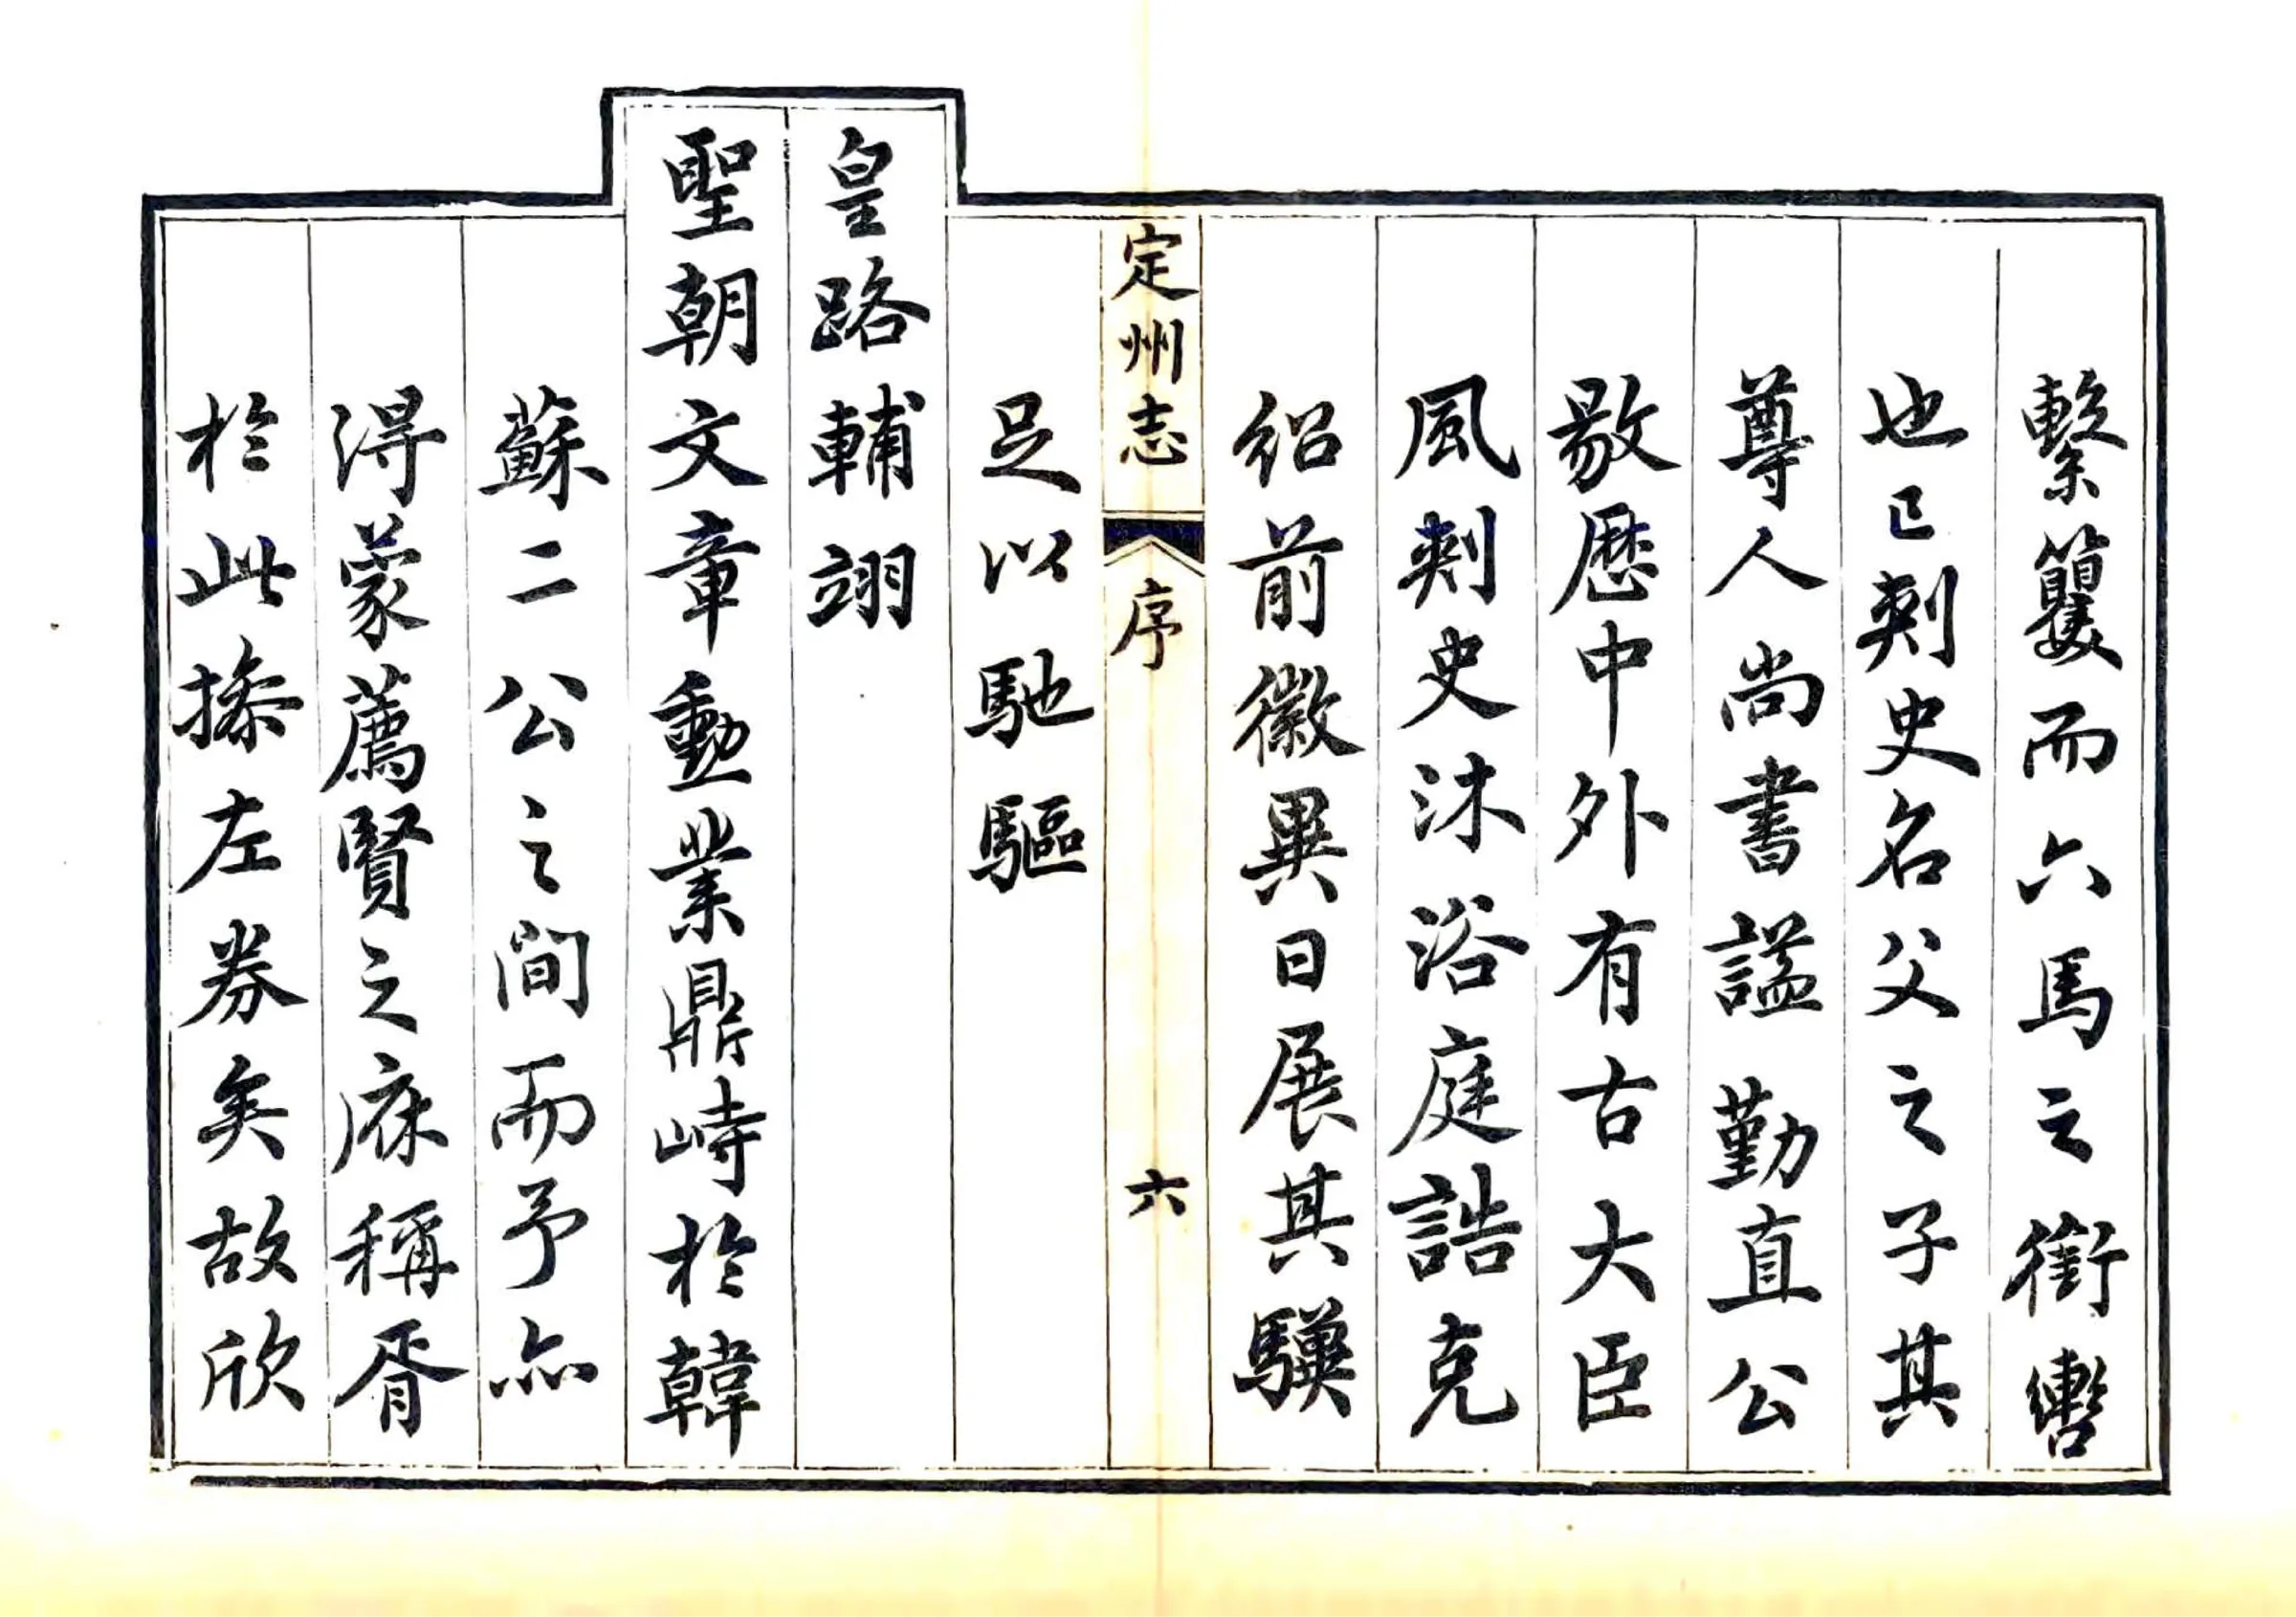 繫籰而六馬之銜轡
也已刺史名父之子其
尊人尚書謚勤直公
敭歷中外有古大臣
風刺史沐浴庭誥克
紹前徽異日展其驥
定州志
序
六
足以馳驅
皇路輔翊
聖朝文章勳業鼎峙於韓
蘇二公之間而予亦
得蒙薦賢之庥稱胥
於此操左券矣故欣